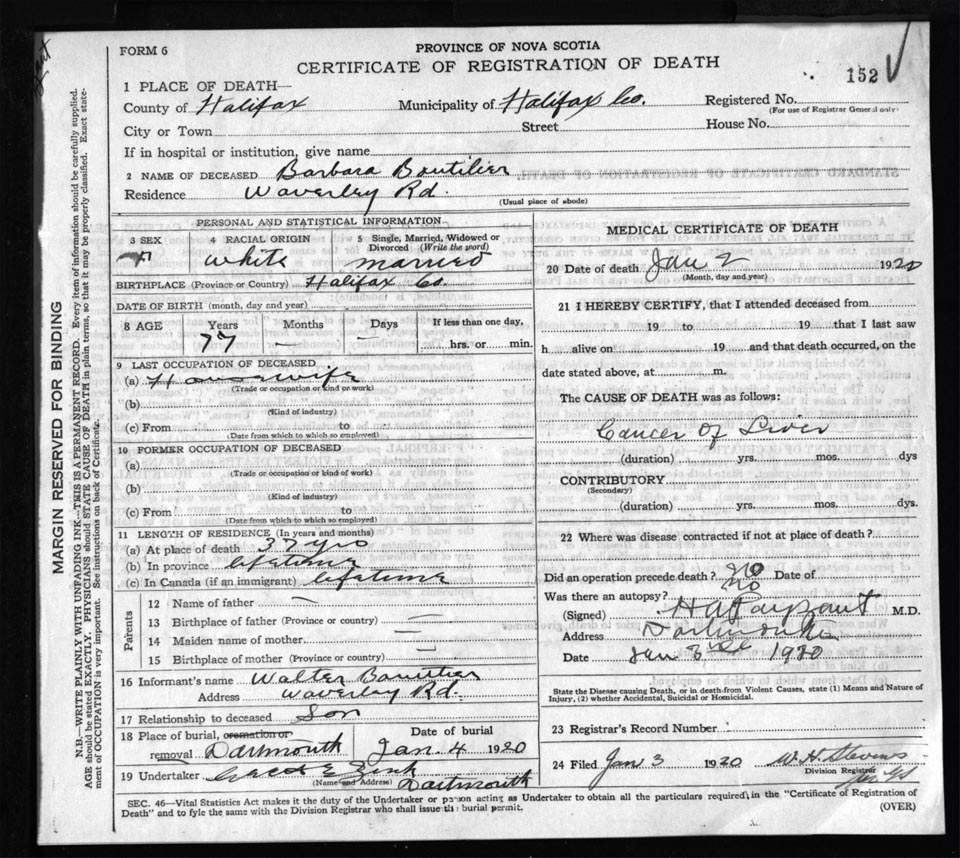 FORM 6
PROVINCE OF NOVA SCOTIA
CERTIFICATE OF REGISTRATION OF DEATH
152
1 PLACE OF DEATH—
County of Halifax Municipality of Halifax Co. Registered No.
(For use of Registrar General only)
City or Town Street House No.
If in hospital or institution, give name
2 NAME OF DECEASED Barbara Boutilier
Residence Waverley Rd.
(Usual place of abode)
PERSONAL AND STATISTICAL INFORMATION
3 SEX 4 RACIAL ORIGIN 5 Single, Married, Widowed or Divorced (Write the word)
F White Married
BIRTHPLACE (Province or Country) Halifax Co.
DATE OF BIRTH (month, day and year)
8 AGE Years Months Days If less than one day,
77 — — hrs. or min.
9 LAST OCCUPATION OF DECEASED
(a) Housewife
(Trade or occupation or kind or work)
(b)
(Kind of industry)
(c) From to
(Date from which to which so employed)
10 FORMER OCCUPATION OF DECEASED
(a)
(Trade or occupation or kind of work)
(b)
(Kind of industry)
(c) From to
(Date from which to which so employed)
11 LENGTH OF RESIDENCE (In years and months)
(a) At place of death yrs
(b) In province lifetime
(c) In Canada (if an immigrant) lifetime
Parents
12 Name of father —
13 Birthplace of father (Province or country) —
14 Maiden name of mother —
15 Birthplace of mother (Province or country) —
16 Informant's name Walter Boutilier
Address Waverley Rd.
17 Relationship to deceased Son
18 Place of burial, cremation or removal Dartmouth Date of burial Jan. 4 1920
19 Undertaker Zink
(Name and Address) Dartmouth
MEDICAL CERTIFICATE OF DEATH
20 Date of death Jan 2 1920
(Month, day and year)
21 I HEREBY CERTIFY, that I attended deceased from
19 to 19 that I last saw
h alive on 19 and that death occurred, on the
date stated above, at m.
The CAUSE OF DEATH was as follows:
Cancer of Liver
(duration) yrs. mos. dys
CONTRIBUTORY
(Secondary)
(duration) yrs. mos. dys.
22 Where was disease contracted if not at place of death?
Did an operation precede death? no Date of
Was there an autopsy? no
(Signed) H A Payzant M.D.
Address Dartmouth
Date Jan 3rd 1920
State the Disease causing Death, or in death from Violent Causes, state (1) Means and Nature of
Injury, (2) whether Accidental, Suicidal or Homicidal.
23 Registrar's Record Number
24 Filed Jan 3 1920 W. H. Stevens
Division Registrar
SEC. 46—Vital Statistics Act makes it the duty of the Undertaker or person acting as Undertaker to obtain all the particulars required in the "Certificate of Registration of
Death" and to fyle the same with the Division Registrar who shall issue the burial permit. (OVER)
MARGIN RESERVED FOR BINDING
N.B.—WRITE PLAINLY WITH UNFADING INK—THIS IS A PERMANENT RECORD. Every item of information should be carefully supplied.
AGE should be stated EXACTLY. PHYSICIANS should STATE CAUSE OF DEATH in plain terms, so that it may be properly classified. Exact state-
ment of OCCUPATION is very important. See instructions on back of Certificate.